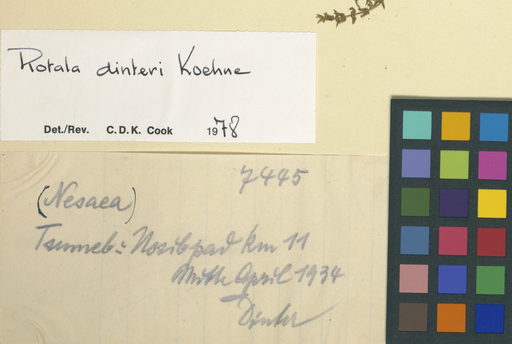 Rotala dinteri Koehne
Det./Rev. C.D.K. Cook 1978
7445
(Nesaea)
Tsumeb: Nosib pad km 11
Mitte April 1934
Dinter